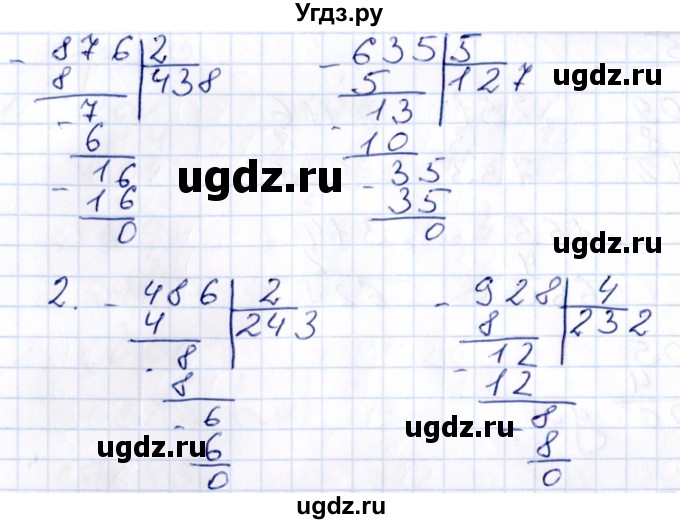 Угдз.ру
876 2
8 438
7
6
16
16
0
635 5
5 127
13
10
35
35
0
ugdz.ru
ugdz.ru
2. - 486 2
4 243
8
8
6
6
0
- 928 4
8 232
12
12
8
8
0
ugdz.ru
ugdz.ru
ugdz.ru